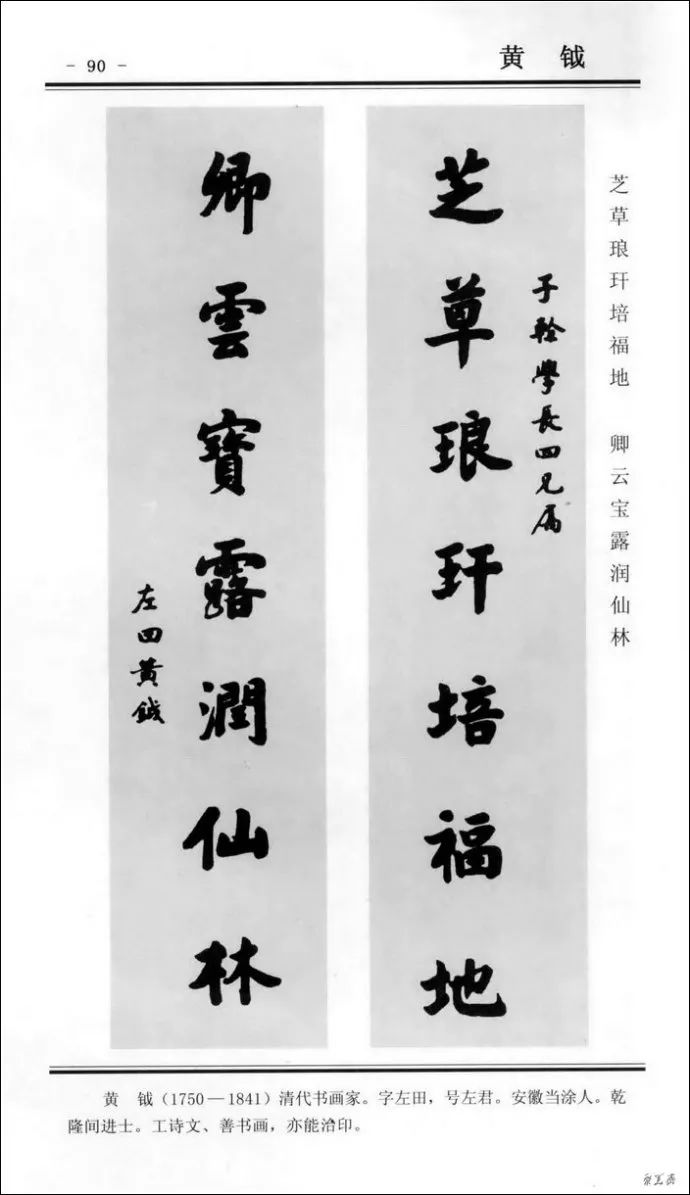 - 90 -
黄 钺
芝草琅玕培福地 卿云宝露润仙林
子軨學長四兄属
芝草琅玕培福地
卿雲寶露潤仙林
左田黄鉞
黄 钺（1750—1841）清代书画家。字左田，号左君。安徽当涂人。乾
隆间进士。工诗文、善书画，亦能治印。